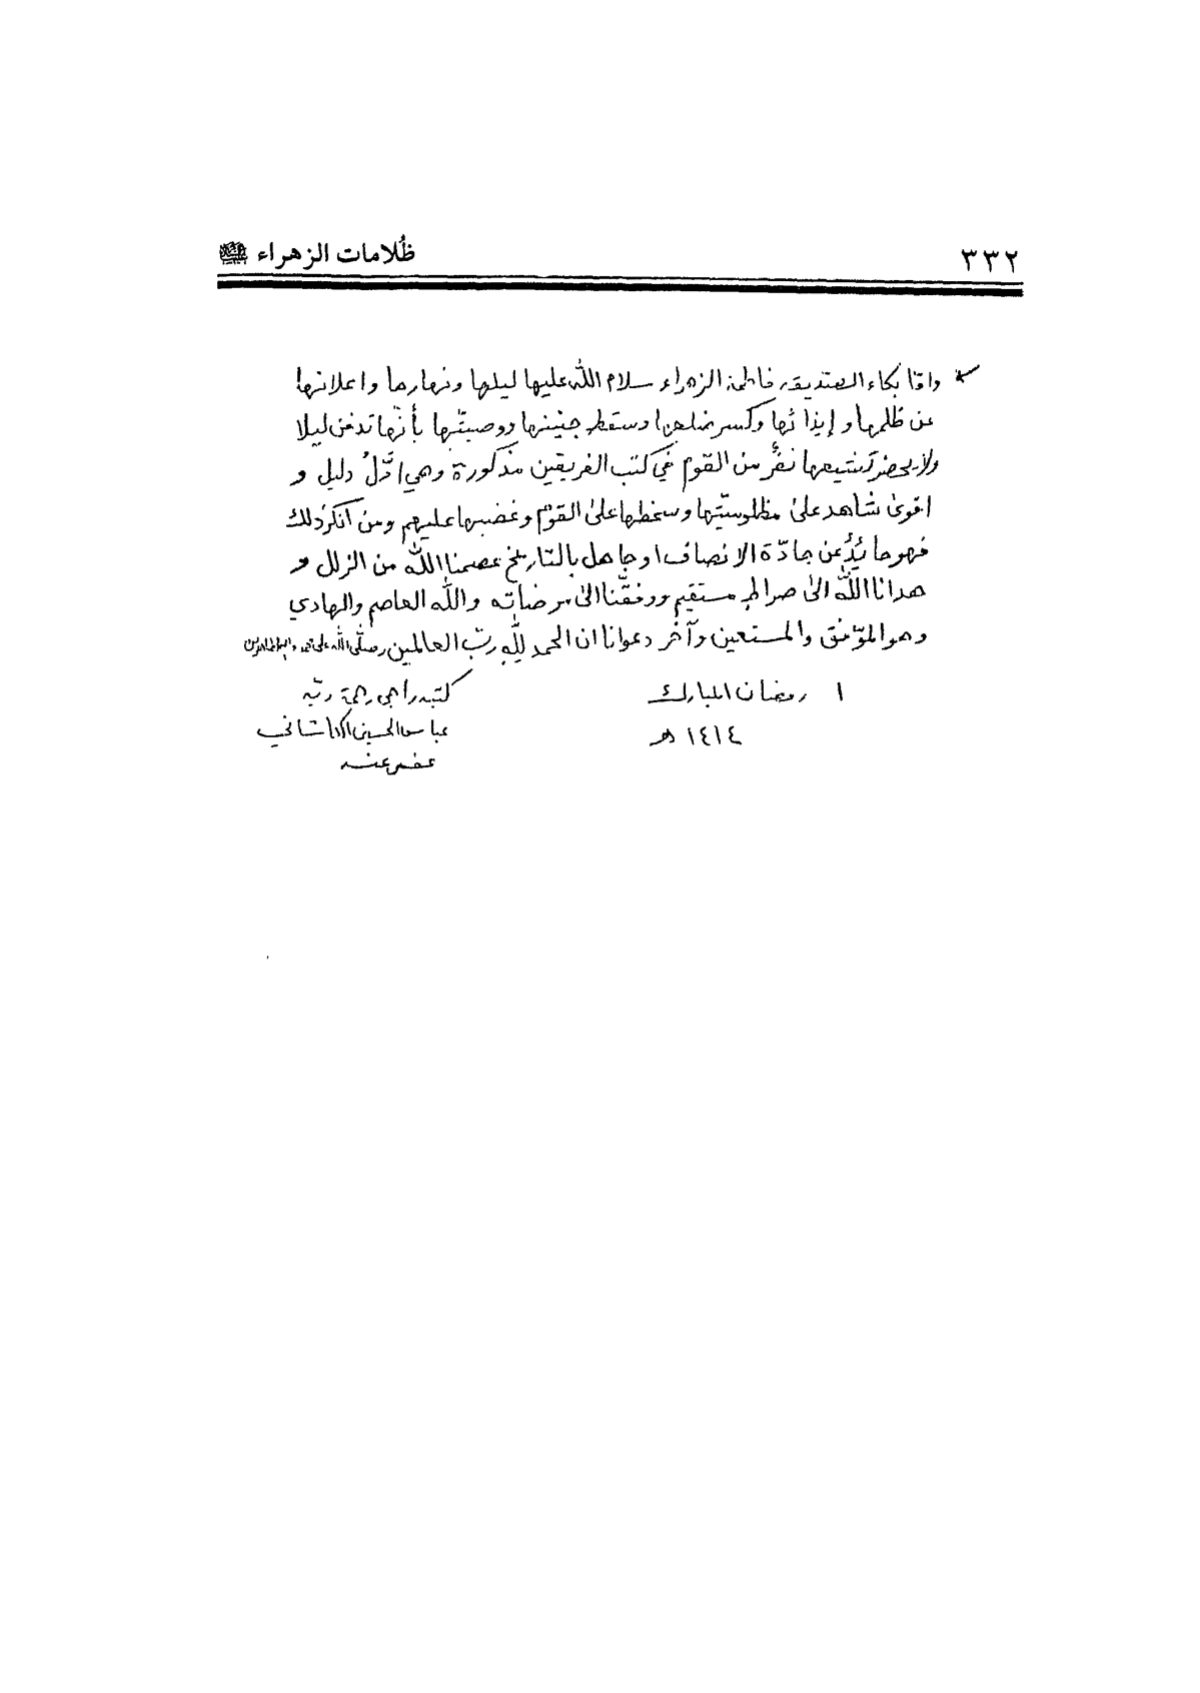 ٣٣٢
ظُلامات الزهراء
وامّا بكاء الصدّيقة فاطمة الزهراء سلام الله عليها ليلها ونهارها واعلانها
عن ظلمها و إيذائها وكسر ضلعها وسقط جنينها ووصيّتها بأنّها تدفن ليلا
ولا يحضر تشييعها نفرٌ من القوم في كتب الفريقين مذكورة وهي ادَلُّ دليل و
اقوىٰ شاهد علىٰ مظلوميّتها وسخطها علىٰ القوم وغضبها عليهم ومن انكر ذلك
فهو حائدٌ عن جادّة الانصاف او جاهل بالتاريخ عصمنا الله من الزلل و
هدانا الله الىٰ صراط مستقيم ووفقّنا الىٰ مرضاته والله العاصم والهادي
وهو الموّفق والمستعين وآخر دعوانا ان الحمد للّٰه ربّ العالمين وصلّى الله على محمد وآله الطاهرين
١ رمضان المبارك
١٤١٤ هـ
كتبه راجي رحمة ربّه
عباس الحسيني الكاشاني
عفى عنه